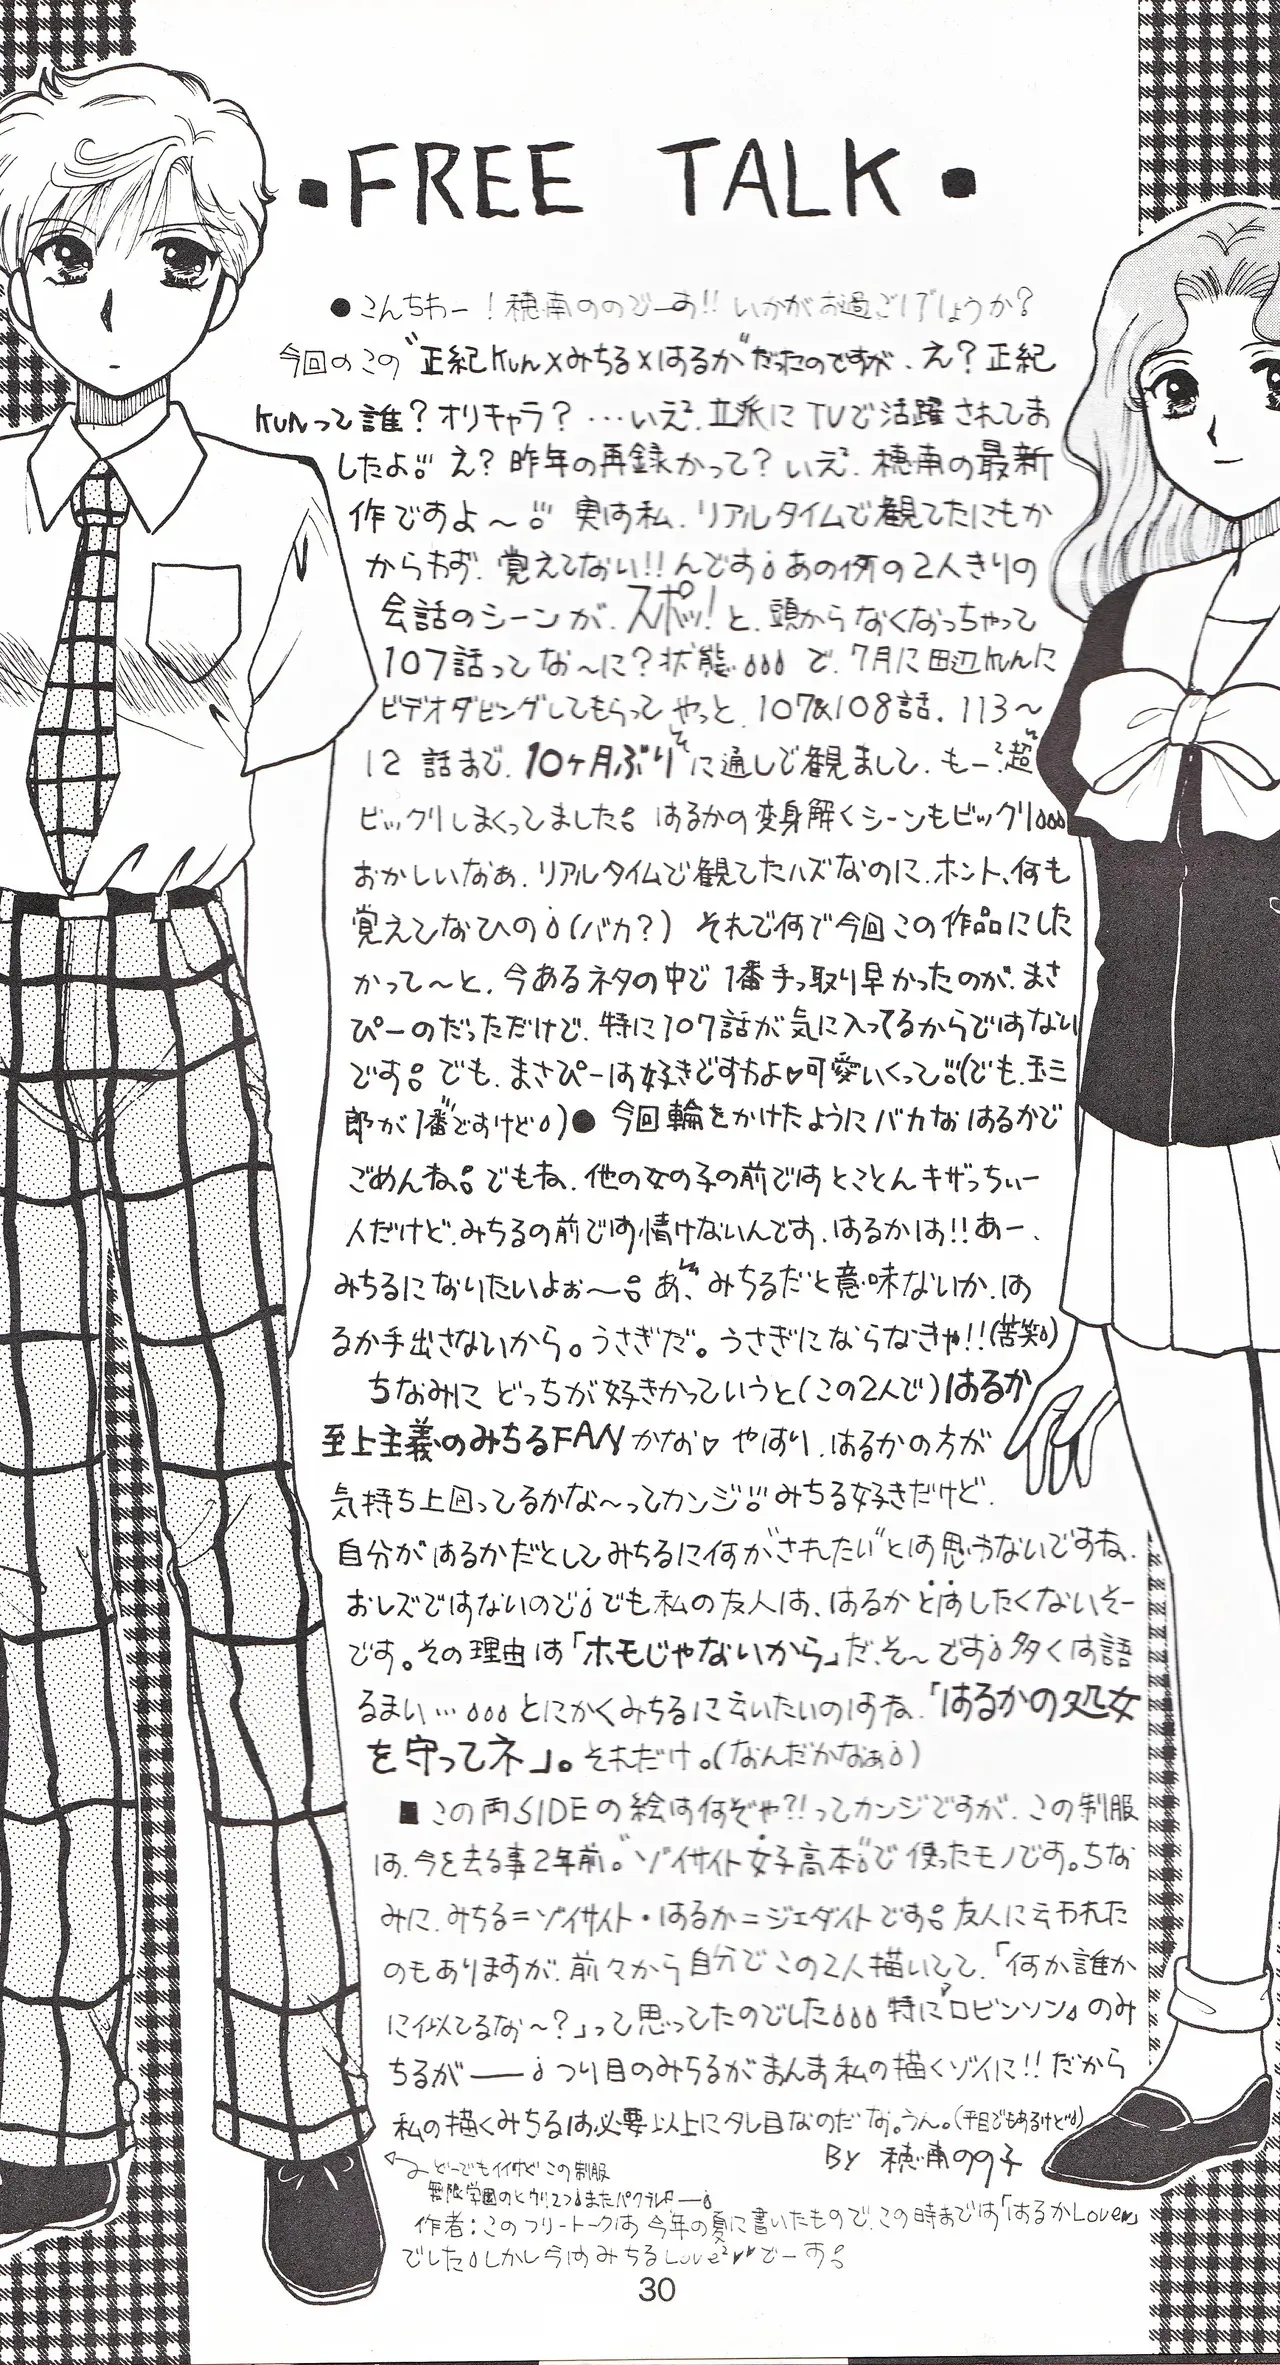 ■FREE TALK■
●こんちわー!穂南ののでーす!!いかがお過ごしでしょうか?
今回のこの"正紀kun×みちる×はるか"だったのですが、え?正紀
kunって誰?オリキャラ?…いえ²、立派にTVで活躍されてしま
したよ!え?昨年の再録かって?いえ²、穂南の最新
作ですよ〜!実は私、リアルタイムで観てたにもか
かわらず、覚えてない!!んです あの例の2人きりの
会話のシーンが、スポッ!と、頭からなくなっちゃって
107話ってな〜に?状態…で、7月に田辺kunに
ビデオダビングしてもらってやっと、107&108話、113〜
12 話まで、10ヶ月ぶりに通しで観まして、もー、超
ビックリしまくってました。はるかの変身解くシーンもビックリ
おかしいなぁ、リアルタイムで観てたハズなのに、ホント、何も
覚えてなひの(バカ?) それで何で今回この作品にした
かって〜と、今あるネタの中で1番手っ取り早かったのが、まさ
ぴーのだっただけで、特に107話が気に入ってるからではない
です。でも、まさぴーは好きですよ♥可愛いくって(でも、玉三
郎が"1番"ですけど)●今回輪をかけたようにバカなはるかで
ごめんね。でもね、他の女の子の前ではとことんキザっちぃー
人だけど、みちるの前では情けないんです、はるかは!!あー、
みちるになりたいよぉ〜。あ、みちるだと意味ないか、は
るか手出さないから。うさぎだ。うさぎにならなきゃ!!(苦笑)
ちなみにどっちが好きかっていうと(この2人で)はるか
至上主義のみちるFANかな♡やはり、はるかの方が
気持ち上回ってるかな〜ってカンジ!!みちる好きだけど、
自分がはるかだとしてみちるに何が"されたい"とは思わないですね、
おレズではないので でも私の友人は、はるかとはしたくないそー
です。その理由は「ホモじゃないから」だ、そ〜です 多くは語
るまい…とにかくみちるに言いたいのはね、「はるかの処女
を守ってネ」。それだけ。(なんだかなぁ)
■この両SIDEの絵は何ぞや?!ってカンジですが、この制服
は、今を去る事2年前。"ゾイサイト女子高本"で使ったモノです。ちな
みに、みちる=ゾイサイト・はるか=ジェダイトです。友人に言われた
のもありますが、前々から自分でこの2人描いてて、「何か誰か
に似てるな〜?」って思ってたのでした 特に"ロビンソン"のみ
ちるが── つり目のみちるがまんま私の描くゾイに!!だから
私の描くみちるは必要以上にタレ目なのだな。うん。(平目でもあるけど)
BY 穂南のの子
どーでもイイけどこの制服
無限学園のとウリ2つ またパクラレ──
作者:このフリートークは今年の夏に書いたもので、この時までは「はるかLove♥」
でした しかし今はみちるLove²♥♥でーす。
30